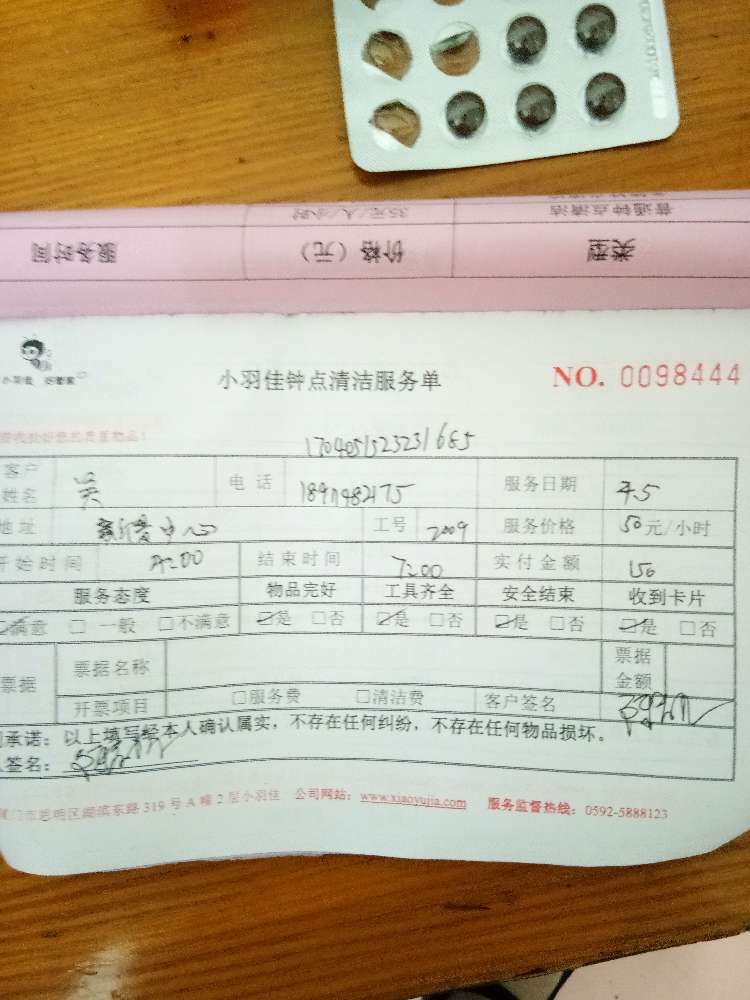 普通钟点清洁 35元/人/小时
类型 价格（元） 服务时间
小羽佳 好管家
小羽佳钟点清洁服务单 NO. 0098444
1704051523231685
客户姓名 吴 电话 服务日期 4.5
地址 中心 工号 2009 服务价格 50元/小时
开始时间 结束时间 实付金额 150
服务态度 物品完好 工具齐全 安全结束 收到卡片
☑满意 □ 一般 □不满意 ☑是 □否 ☑是 □否 ☑是 □否 ☑是 □否
票据 票据名称 票据金额
开票项目 □服务费 □清洁费 客户签名
承诺：以上填写经本人确认属实，不存在任何纠纷，不存在任何物品损坏。
签名：
门市思明区湖滨东路319号A幢2层小羽佳 公司网站：www.xiaoyujia.com 服务监督热线：0592-5888123